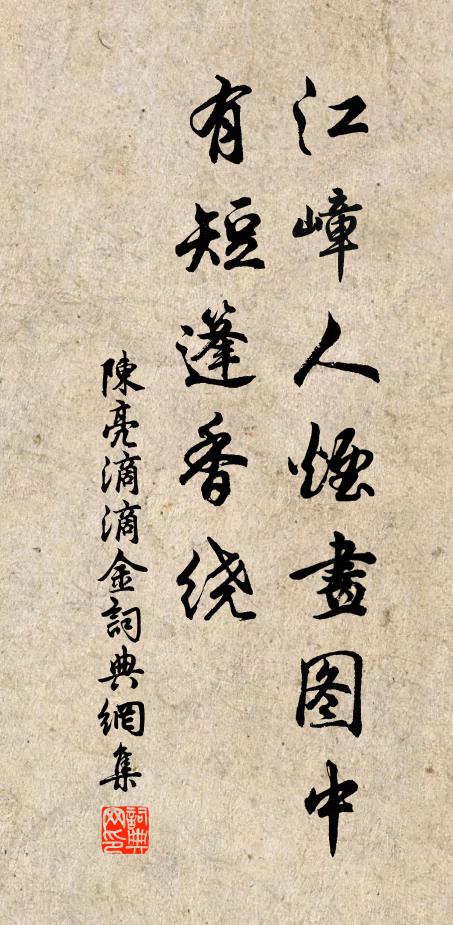 江嶂人煙畫图中
有短蓬香绕
陳亮滴滴金詞典網集
詞典网印